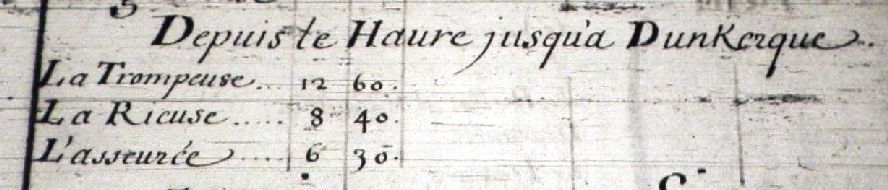 Depuis le Haure jusqu'a Dunkerque.
La Trompeuse... 12 60.
La Rieuse..... 8 40.
L'asseurée..... 6 30.